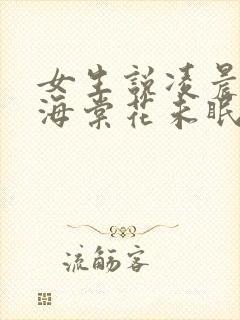 女生說凌晨
海棠花未眠
流觞客